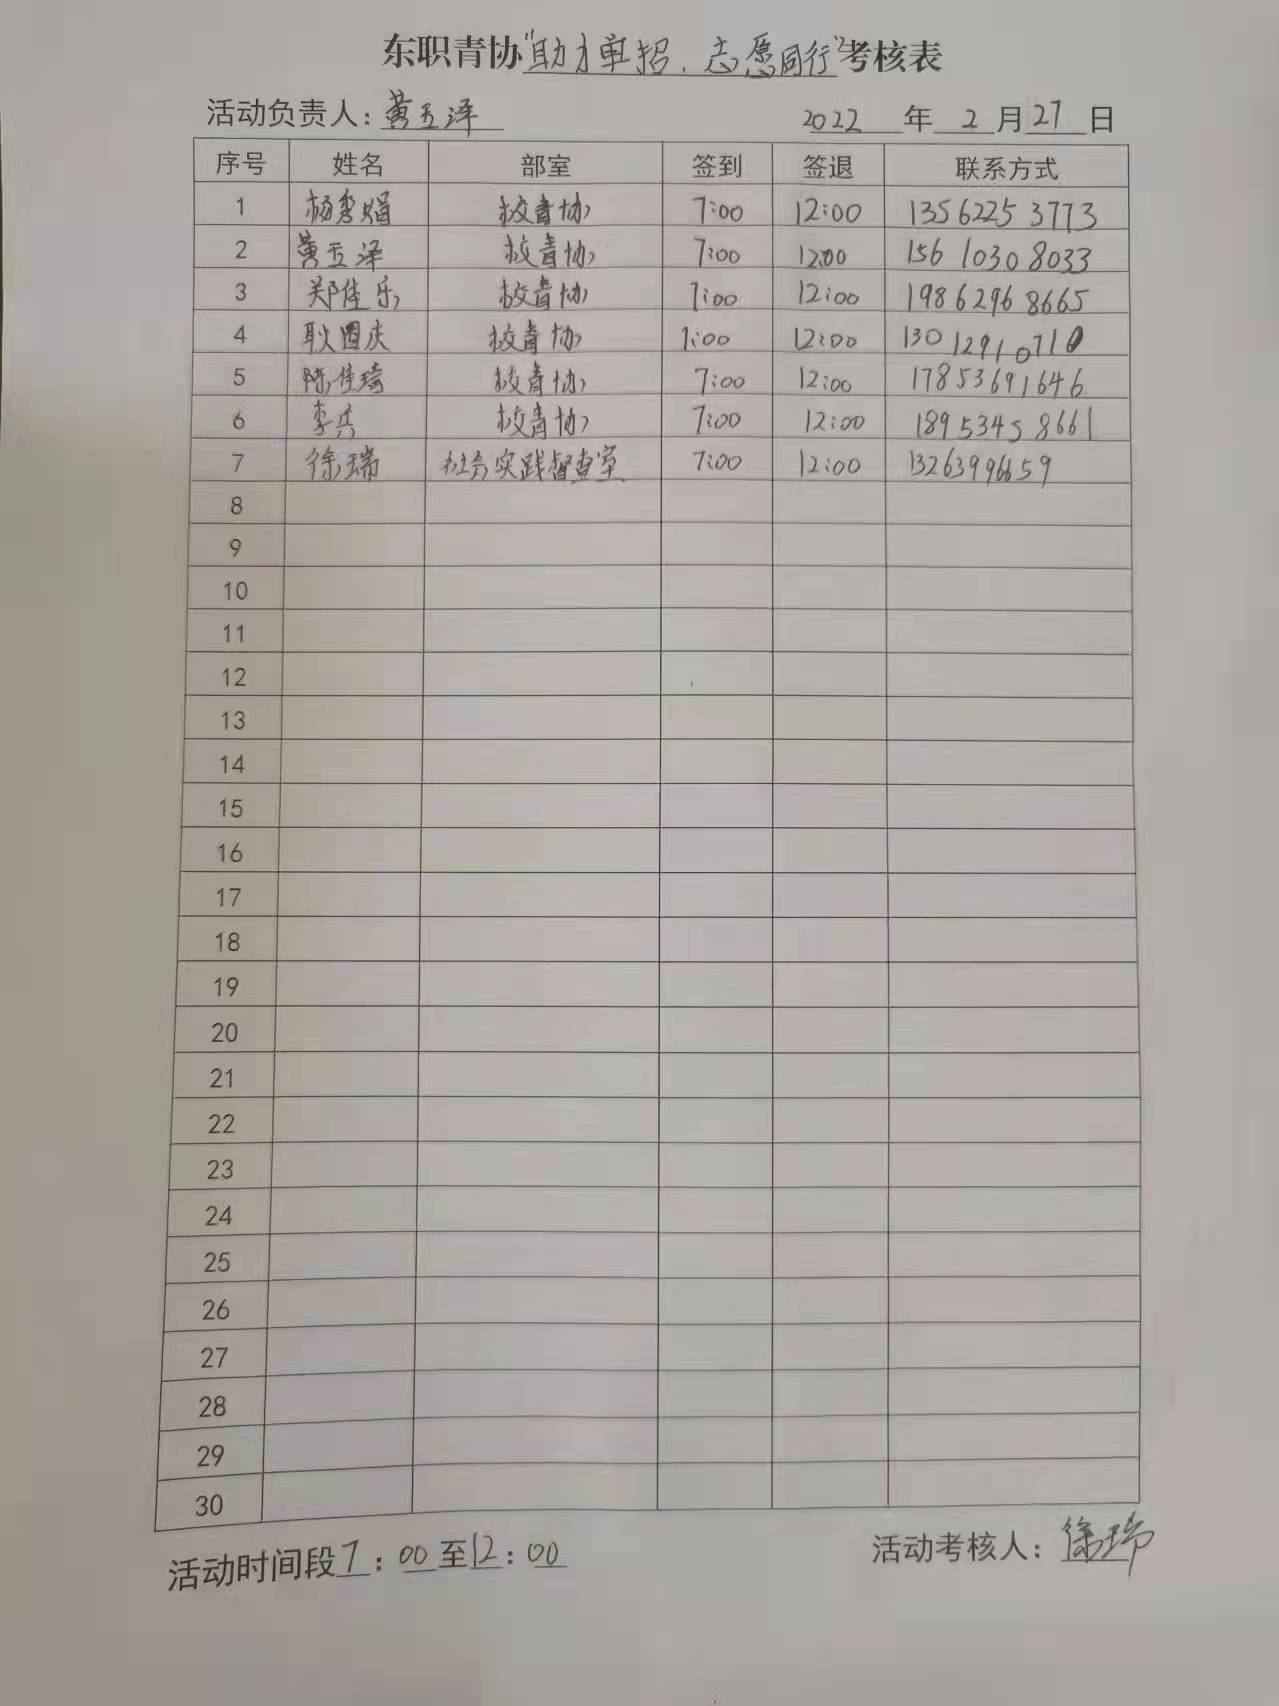 东职青协“助力单招、志愿同行”考核表
活动负责人：黄玉泽 2022 年 2 月 27 日
序号 姓名 部室 签到 签退 联系方式
1 杨秀娟 校青协 7:00 12:00 13562253773
2 黄玉泽 校青协 7:00 12:00 15610308033
3 郑佳乐 校青协 7:00 12:00 19862968665
4 耿国庆 校青协 7:00 12:00 130
5 陈佳琦 校青协 7:00 12:00 17853691646
6 李兵 校青协 7:00 12:00 18953458661
7 徐瑞 社会实践督查室 7:00 12:00 13263996659
8
9
10
11
12
13
14
15
16
17
18
19
20
21
22
23
24
25
26
27
28
29
30
活动时间段7:00至12:00 活动考核人：徐瑞